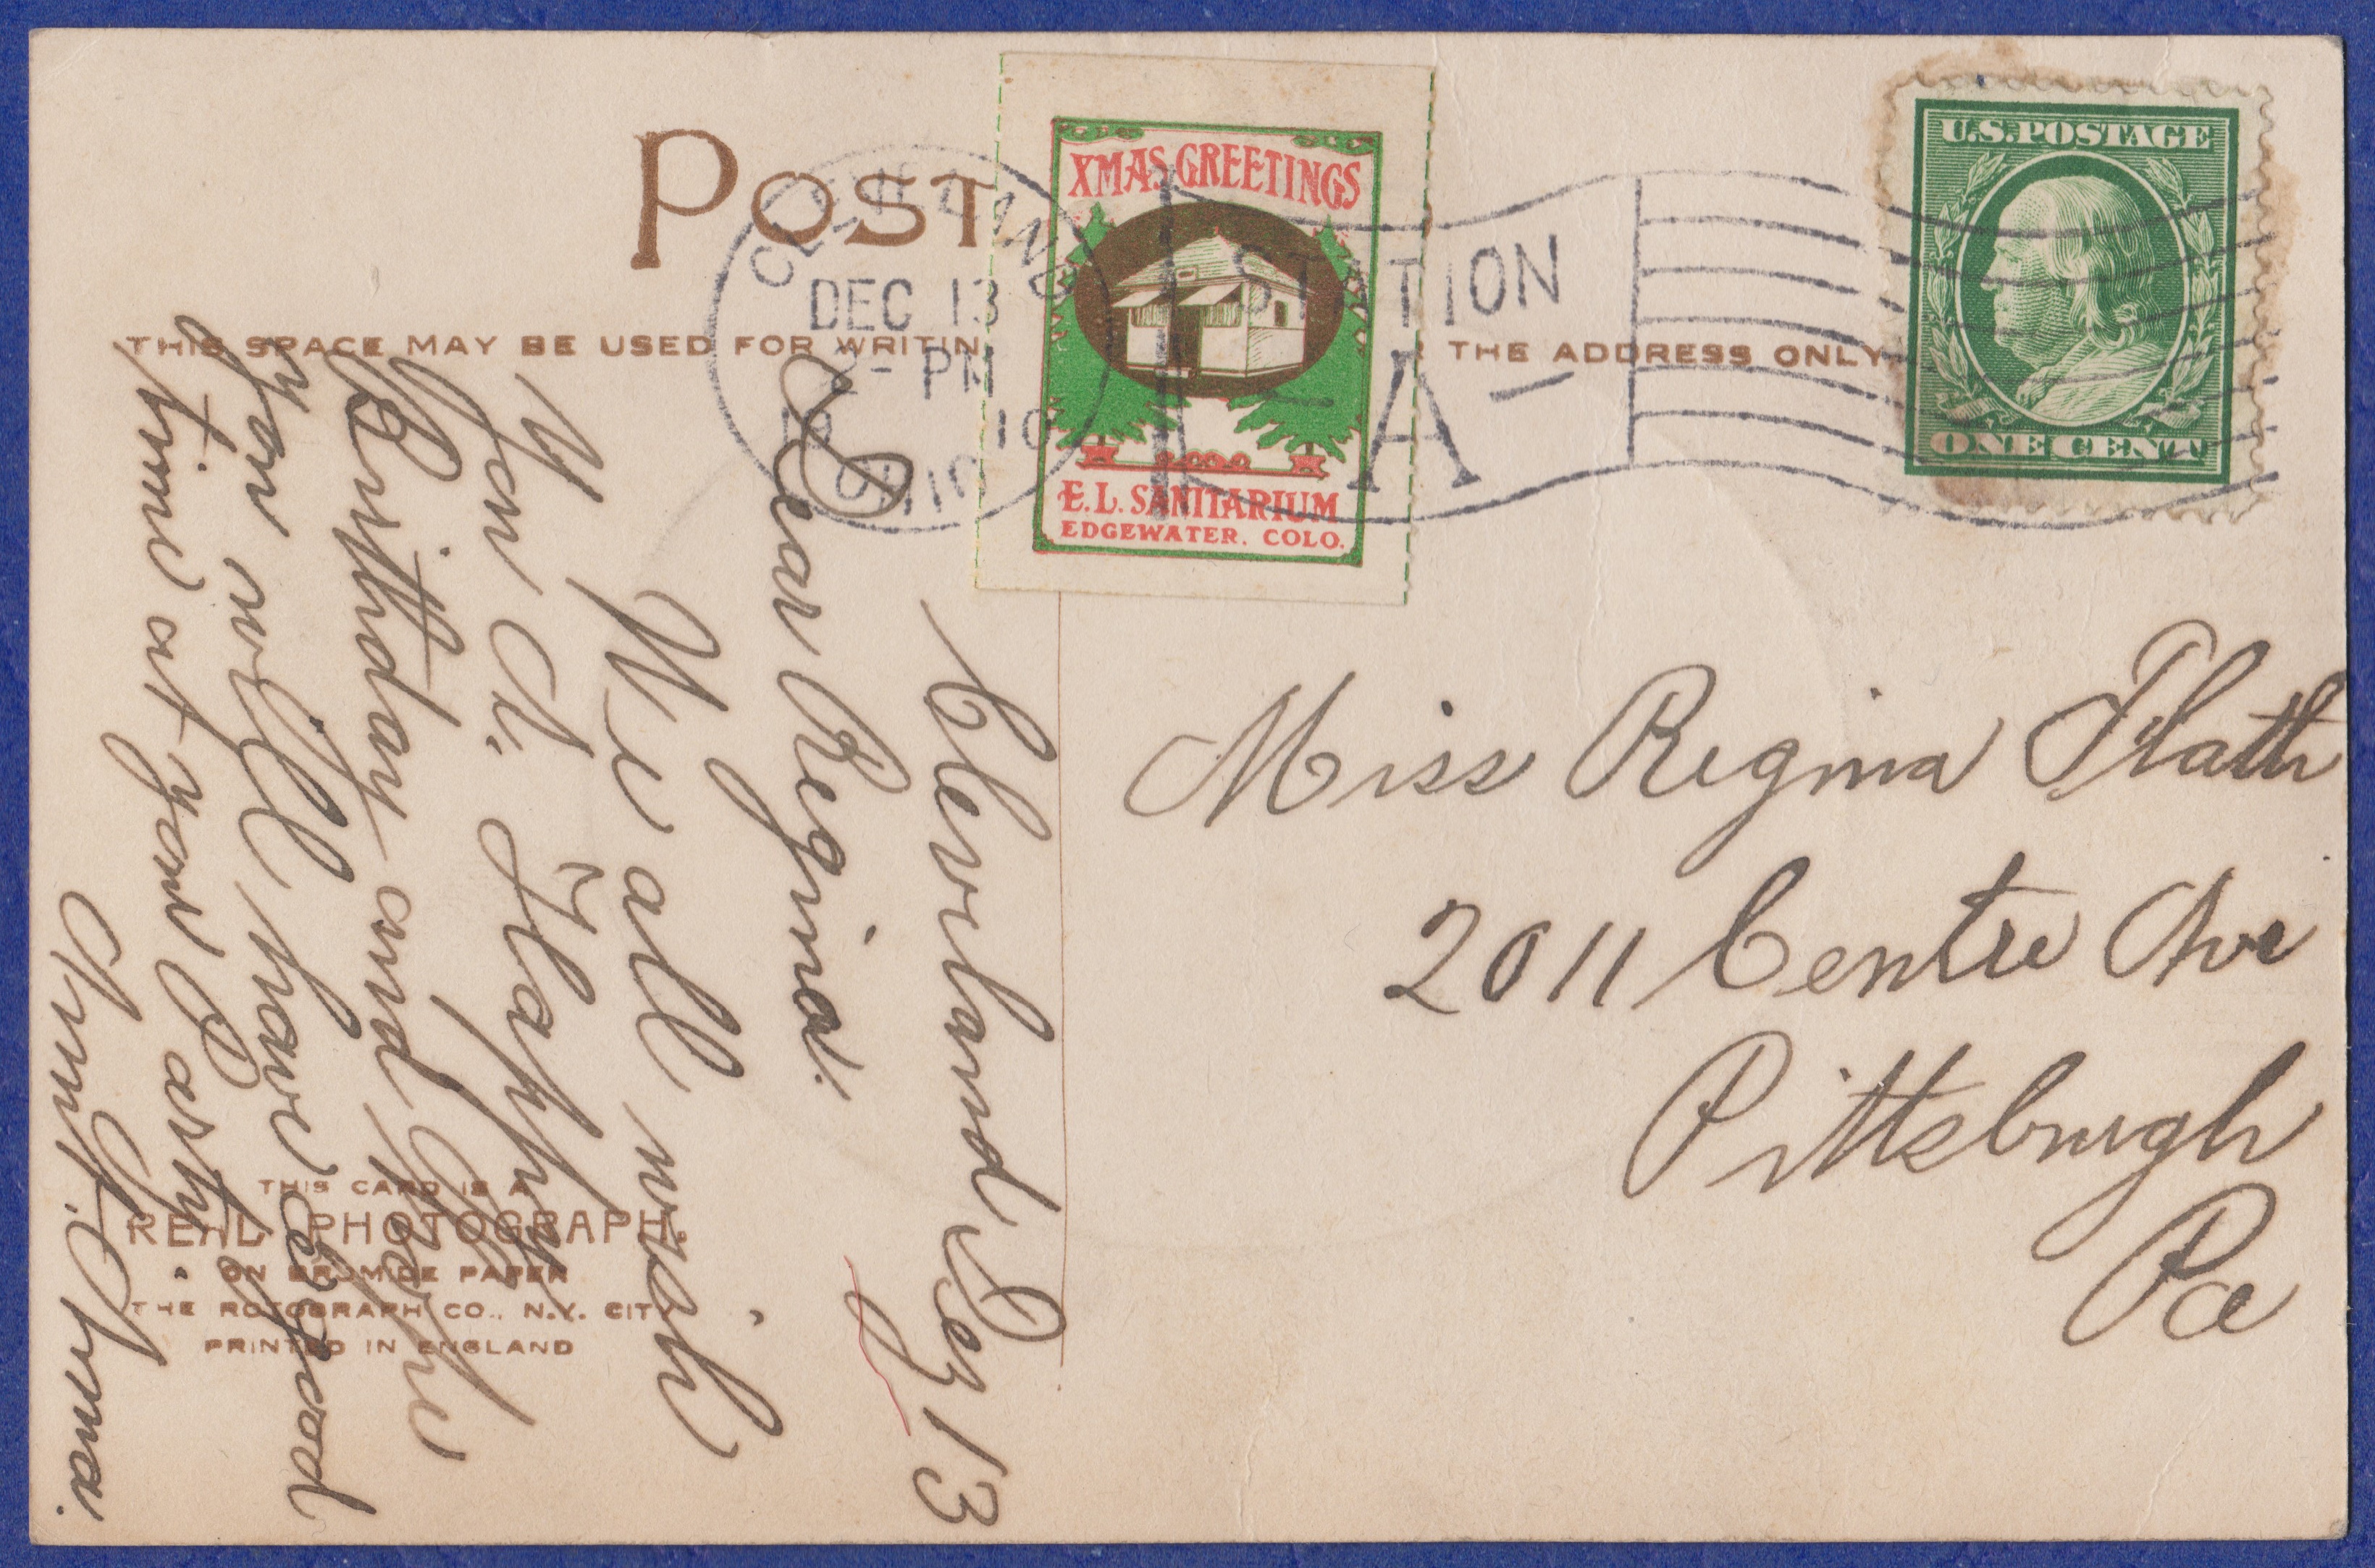 POST
XMAS GREETINGS
E. L. SANITARIUM
EDGEWATER. COLO.
U.S. POSTAGE
ONE CENT
CLEVELAND
DEC 13
2-PM
19 10
OHIO
STATION
-A-
THIS SPACE MAY BE USED FOR WRITIN
THE ADDRESS ONLY
Cleveland Dez 13
Dear Regina.
We all wish
you A. Happy
Birthday and Hope
you will have a good
time at your Party.
Aunt. Anna.
Miss Regina Flath
2011 Centre Ave
Pittsburgh
Pa
THIS CARD IS A
REAL PHOTOGRAPH.
ON BROMIDE PAPER
THE ROTOGRAPH CO., N.Y. CITY
PRINTED IN ENGLAND